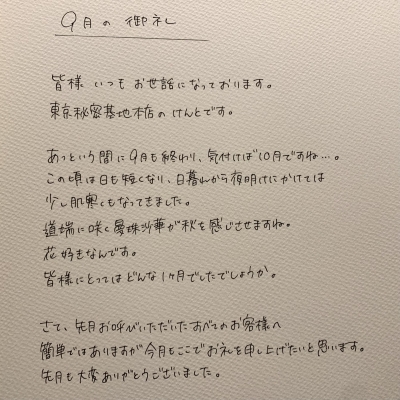 9月の御礼
皆様いつもお世話になっております。
東京秘密基地本店のけんとです。
あっという間に9月も終わり、気付けば10月ですね…。
この頃は日も短くなり、日暮れから夜明けにかけては
少し肌寒くもなってきました。
道端に咲く曼珠沙華が秋を感じさせますね。
花好きなんです。
皆様にとってはどんな1ヶ月でしたでしょうか。
さて、先月お呼びいただいたすべてのお客様へ
簡単ではありますが今月もここでお礼を申し上げたいと思います。
先月も大変ありがとうございました。